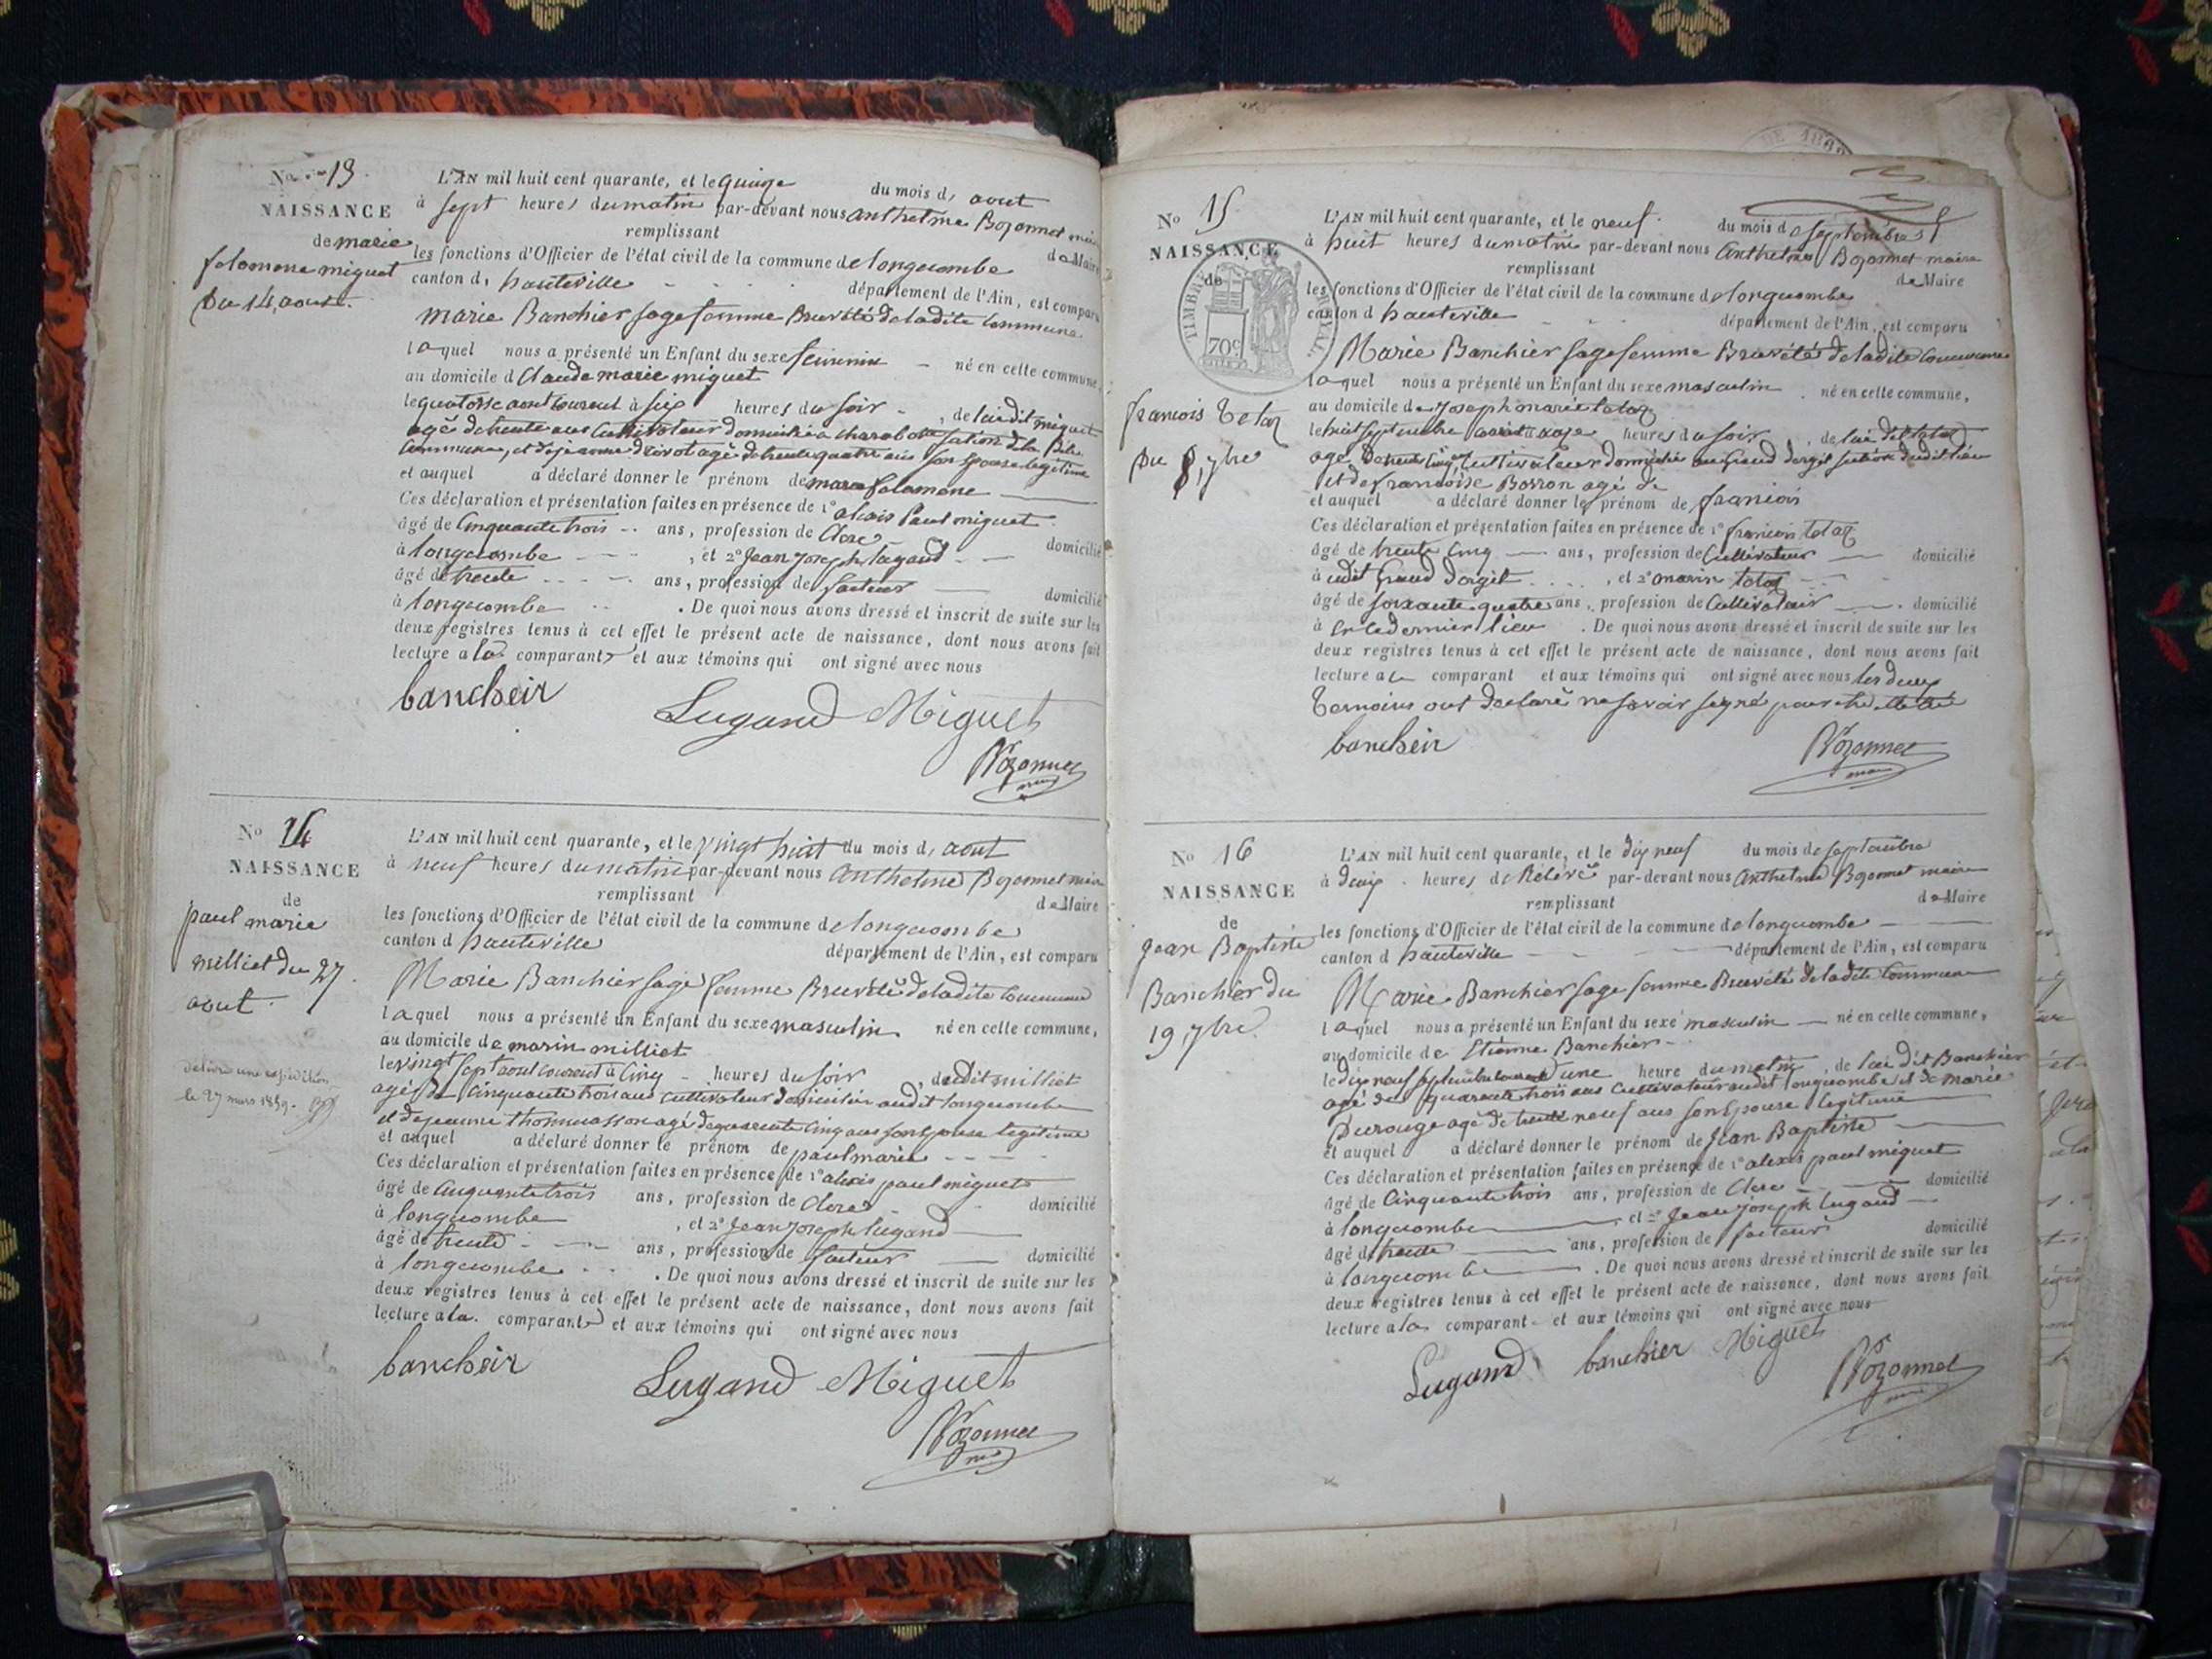 No 13
NAISSANCE
de marie
folomene miguet
Du 14, aoust.
L'AN mil huit cent quarante, et le quinze du mois d, aout
à sept heures du matin par-devant nous anthelme Bozonnet maire
remplissant de Maire
les fonctions d'Officier de l'état civil de la commune de longecombe
canton d, hauteville département de l'Ain, est comparu
marie Banchier sage femme Brevété de ladite commune
laquel nous a présenté un Enfant du sexe feminin né en cette commune,
au domicile d Claude marie miguet
le quatorse aout courent à six heures du soir, de lui dit miguet
agé de trente ans Cultivateur domicilié a charabotte section de la dite
Commune, et de jeanne agé de trente quatre ans son Epouse legitime
et auquel a déclaré donner le prénom de marie folomene
Ces déclaration et présentation faites en présence de 1º alexis Paul miguet
âgé de Cinquante trois ans, profession de Clerc domicilié
à longecombe, et 2º Jean Joseph lugand
âgé de trente ans, profession de facteur domicilié
à longecombe. De quoi nous avons dressé et inscrit de suite sur les
deux registres tenus à cet effet le présent acte de naissance, dont nous avons fait
lecture a la comparant et aux témoins qui ont signé avec nous
bancheir Lugand Miguet
Bozonnet
No 14
NAISSANCE
de
paul marie
milliet du 27
aout.
délivré une expédition
le 27 mars 1859.
L'AN mil huit cent quarante, et le vingt huit du mois d, aout
à neuf heures du matin par-devant nous Anthelme Bozonnet maire
remplissant de Maire
les fonctions d'Officier de l'état civil de la commune de longecombe
canton d hauteville département de l'Ain, est comparu
Marie Banchier sage femme Brevété de ladite Commune
laquel nous a présenté un Enfant du sexe masculin né en cette commune,
au domicile de marin milliet
le vingt sept aout courent à Cinq heures du soir, dudit milliet
agé de Cinquante trois ans cultivateur domicilié audit longecombe
et de jeanne thomasson agé de quarente cinq ans son Epouse legitime
et auquel a déclaré donner le prénom de paul marie
Ces déclaration et présentation faites en présence de 1º alexis paul miguet
âgé de Cinquante trois ans, profession de Clerc domicilié
à longecombe, et 2º Jean Joseph lugand
âgé de trente ans, profession de facteur domicilié
à longecombe. De quoi nous avons dressé et inscrit de suite sur les
deux registres tenus à cet effet le présent acte de naissance, dont nous avons fait
lecture a la comparant et aux témoins qui ont signé avec nous
bancheir Lugand Miguet
Bozonnet
No 15
NAISSANCE
de
TIMBRE ROYAL
70c
francois tetaz
Du 8, 7bre
L'AN mil huit cent quarante, et le neuf du mois d septembre
à huit heures du matin par-devant nous Anthelme Bozonnet maire
remplissant de Maire
les fonctions d'Officier de l'état civil de la commune d longecombe
canton d hauteville département de l'Ain, est comparu
Marie Banchier sage femme Brevété de ladite Commune
laquel nous a présenté un Enfant du sexe masculin né en cette commune,
au domicile de Joseph marie tetaz
le huit septembre courent à onze heures du soir, de lui dit tetaz
agé de trente cinq Cultivateur domicilié au Grand dergit section dudit lieu
et de francoise Borron agé de
et auquel a déclaré donner le prénom de francois
Ces déclaration et présentation faites en présence de 1º francois tetaz
âgé de trente cinq ans, profession de Cultivateur domicilié
à udit Grand dergit, et 2º marin tetaz
âgé de soixante quatre ans, profession de Cultivateur domicilié
à ce dernier lieu. De quoi nous avons dressé et inscrit de suite sur les
deux registres tenus à cet effet le présent acte de naissance, dont nous avons fait
lecture a la comparant et aux témoins qui ont signé avec nous les deux
temoins ont declaré ne savoir signé
bancheir Bozonnet
No 16
NAISSANCE
de
jean Baptiste
Banchier du
19, 7bre
L'AN mil huit cent quarante, et le dix neuf du mois de septembre
à deux heures de Relevé par-devant nous Anthelme Bozonnet maire
remplissant de Maire
les fonctions d'Officier de l'état civil de la commune de longecombe
canton d hauteville département de l'Ain, est comparu
Marie Banchier sage femme Brevété de ladite Commune
laquel nous a présenté un Enfant du sexe masculin né en cette commune,
au domicile de Etienne Banchier
le dix neuf septembre courent à une heure du matin, de lui dit Banchier
agé de quarente trois ans Cultivateur audit longecombe et de marie
Durouge agé de trente neuf ans son Epouse legitime
et auquel a déclaré donner le prénom de Jean Baptiste
Ces déclaration et présentation faites en présence de 1º alexis paul miguet
âgé de Cinquante trois ans, profession de Clerc domicilié
à longecombe, et 2º Jean Joseph lugand
âgé de trente ans, profession de facteur domicilié
à longecombe. De quoi nous avons dressé et inscrit de suite sur les
deux registres tenus à cet effet le présent acte de naissance, dont nous avons fait
lecture a la comparant et aux témoins qui ont signé avec nous
Lugand banchier Miguet
Bozonnet